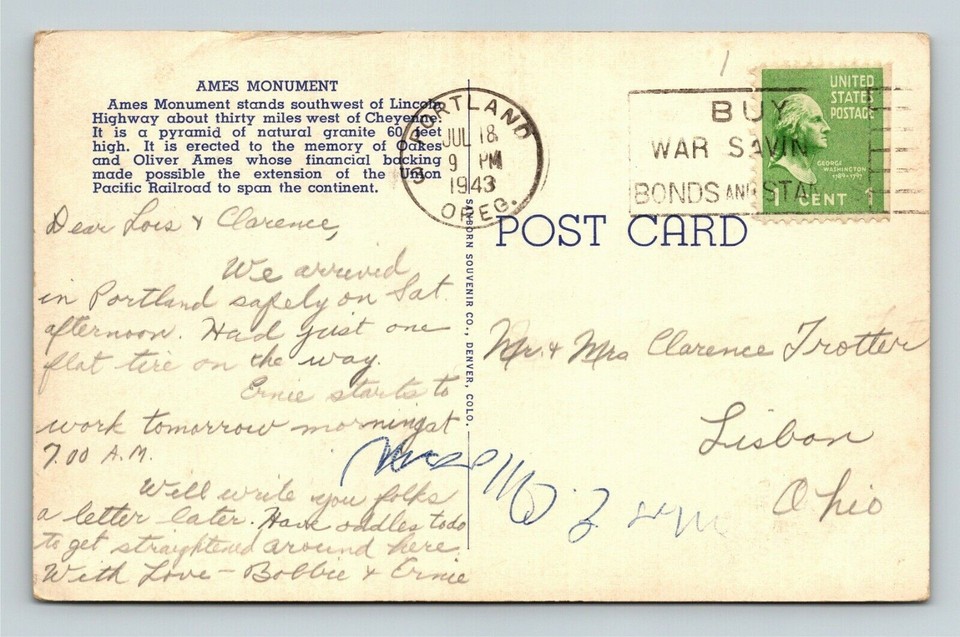 AMES MONUMENT
Ames Monument stands southwest of Lincoln
Highway about thirty miles west of Cheyenne.
It is a pyramid of natural granite 60 feet
high. It is erected to the memory of Oakes
and Oliver Ames whose financial backing
made possible the extension of the Union
Pacific Railroad to span the continent.
Dear Lois & Clarence,
We arrived
in Portland safely on Sat.
afternoon. Had just one
flat tire on the way.
Ernie starts to
work tomorrow morning at
7.00 A.M.
Will write you folks
a letter later. Have oodles to do
to get straightened around here.
With Love - Bobbie & Ernie
SANBORN SOUVENIR CO., DENVER, COLO.
PORTLAND
JUL 18
9 PM
1943
OREG.
BUY
WAR SAVIN
BONDS AND STAM
UNITED
STATES
POSTAGE
GEORGE
WASHINGTON
1789-1797
1 CENT 1
POST CARD
Mr. & Mrs Clarence Trotter
Lisbon
Ohio